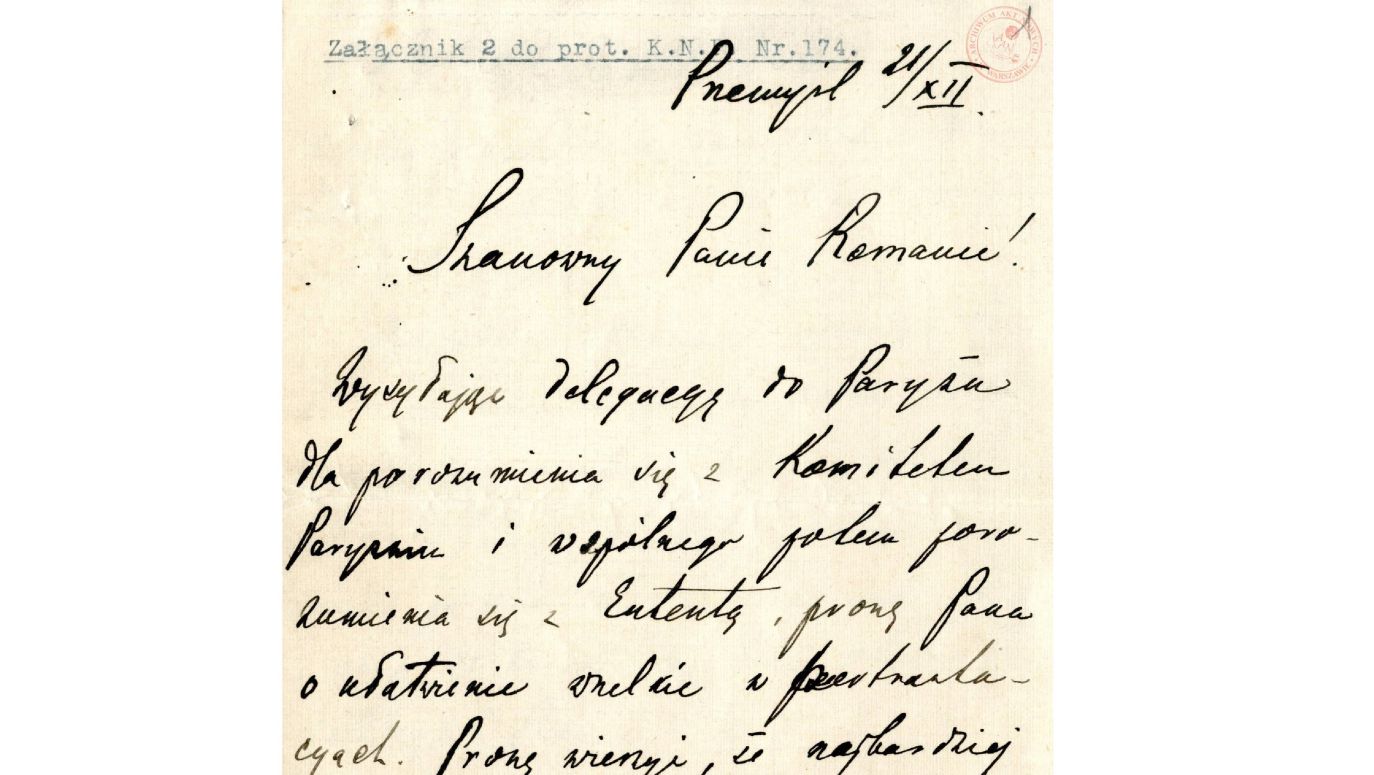 Załącznik 2 do prot. K.N.P. Nr.174.
ARCHIWUM AKT NOWYCH
WARSZAWIE
Przemyśl 21/XII.
Szanowny Panie Romanie!
Wysyłając delegacyę do Paryża
dla porozumienia się z Komitetem
Paryskim i wspólnego potem poro-
zumienia się z Ententą, proszę Pana
o ułatwienie wszelkie w pertrakta-
cyach. Proszę wierzyć, że najbardziej